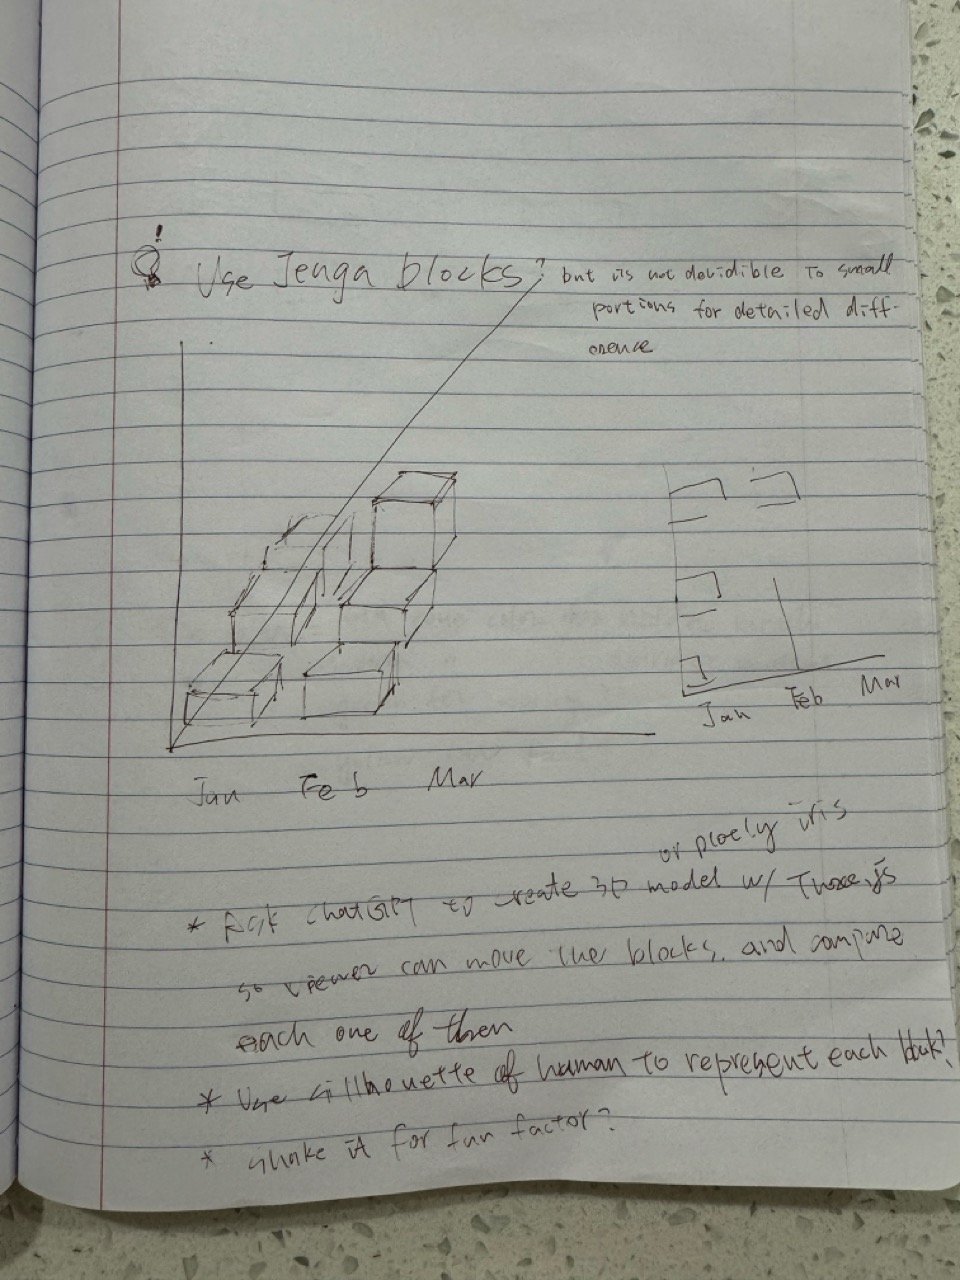 !
Use Jenga blocks? but its not devidible to small
portions for detailed diff-
erence
Jan Feb Mar
Jan Feb Mar
or iris
* Ask ChatGPT to create 3D model w/ Three.js
so viewer can move the blocks, and compare
each one of them
* Use sillhouette of human to represent each block?
* shake it for fun factor?